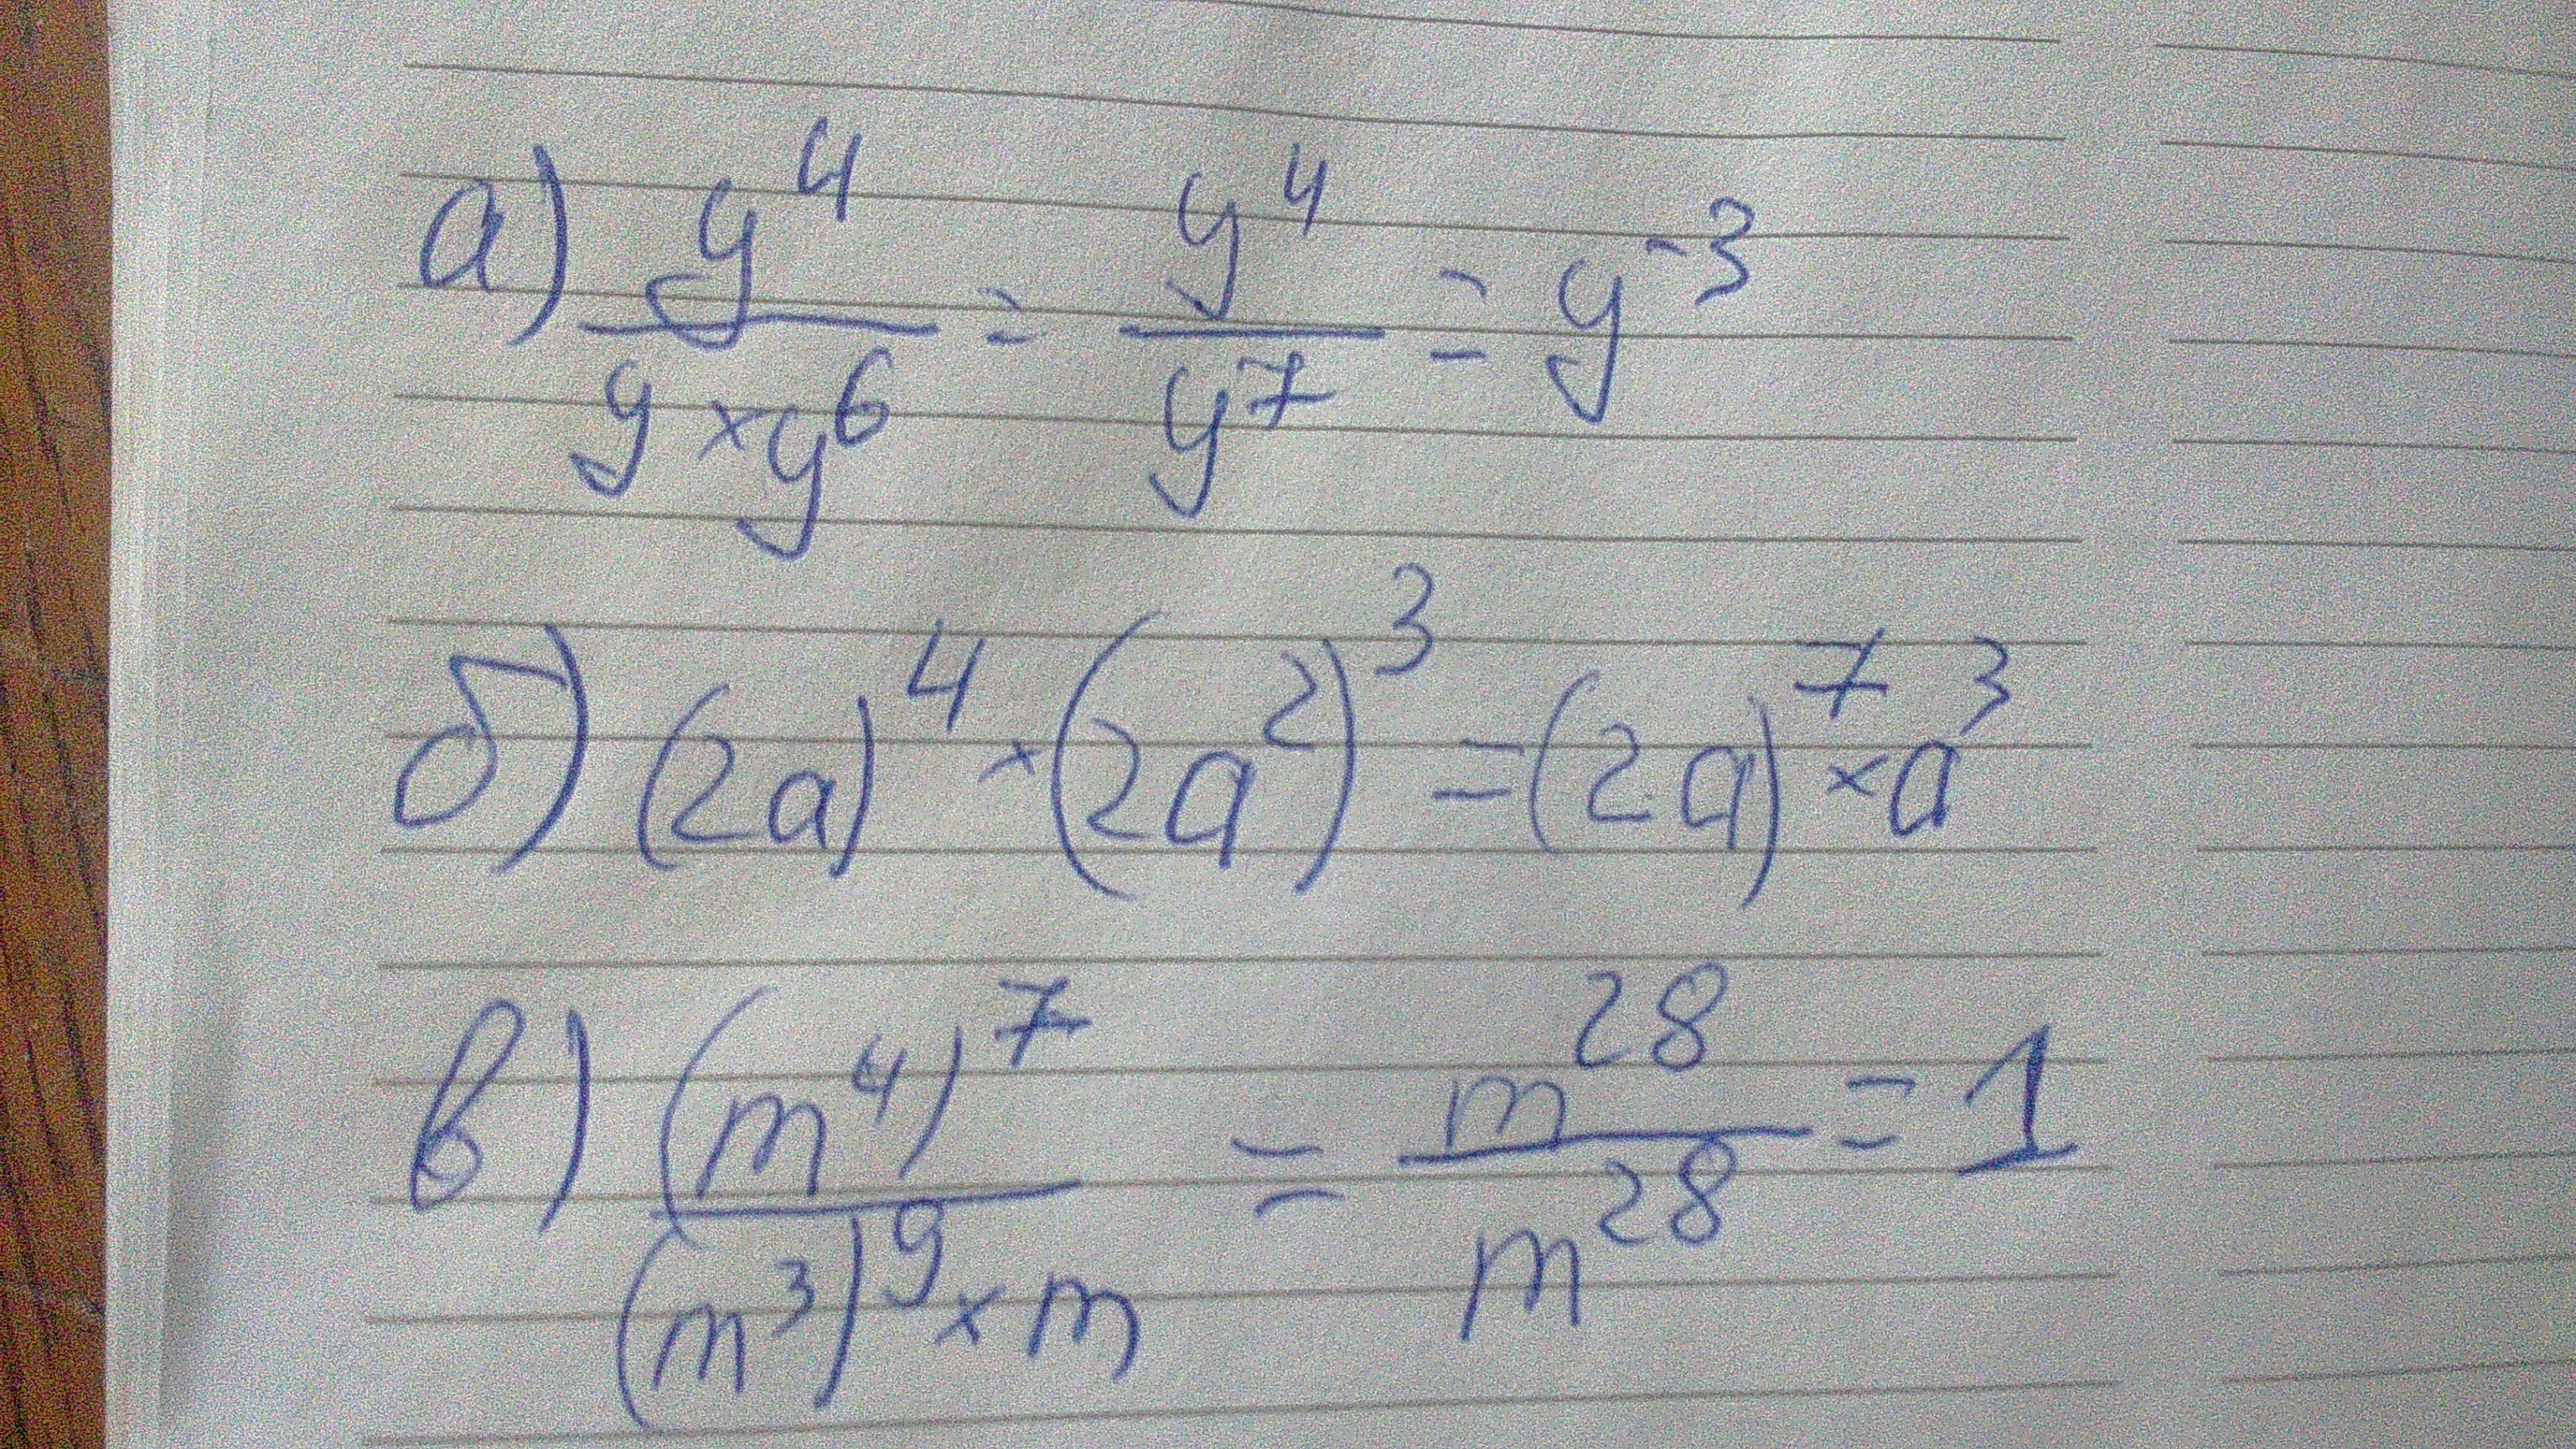 а) y⁴/(y × y⁶) = y⁴/y⁷ = y⁻³
б) (2a)⁴ × (2a²)³ = (2a)⁷ × a³
в) (m⁴)⁷/((m³)⁹ × m) = m²⁸/m²⁸ = 1